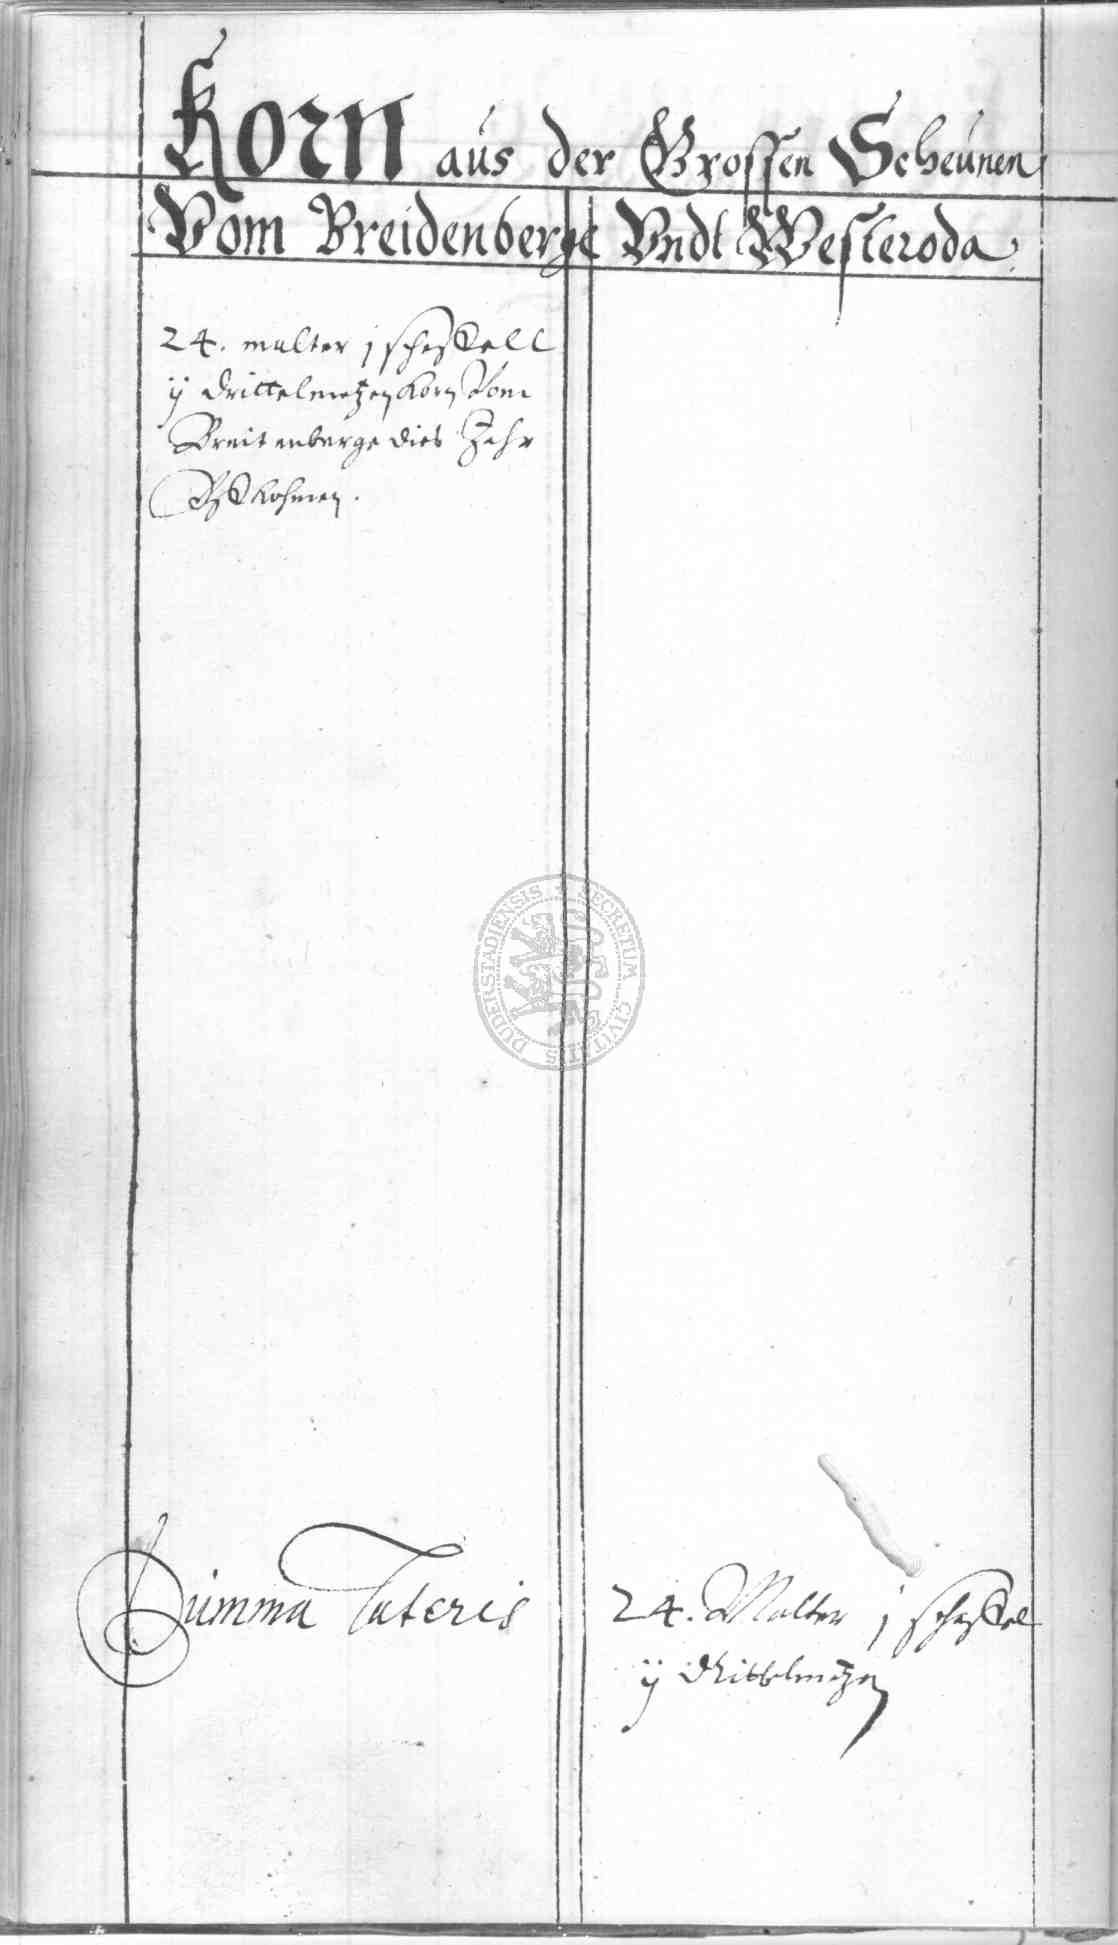 Korn aus der Grossen Scheunen
Vom Breidenberge Vndt Westeroda.
24. malter j scheffell
ij drittelmetzen Korn Vom
Breitenberge dies Jahr
Summa Lateris
24. Malter j scheffel
ij drittelmetzen
DUDERSTADIENSIS SECRETUM CIVITATIS